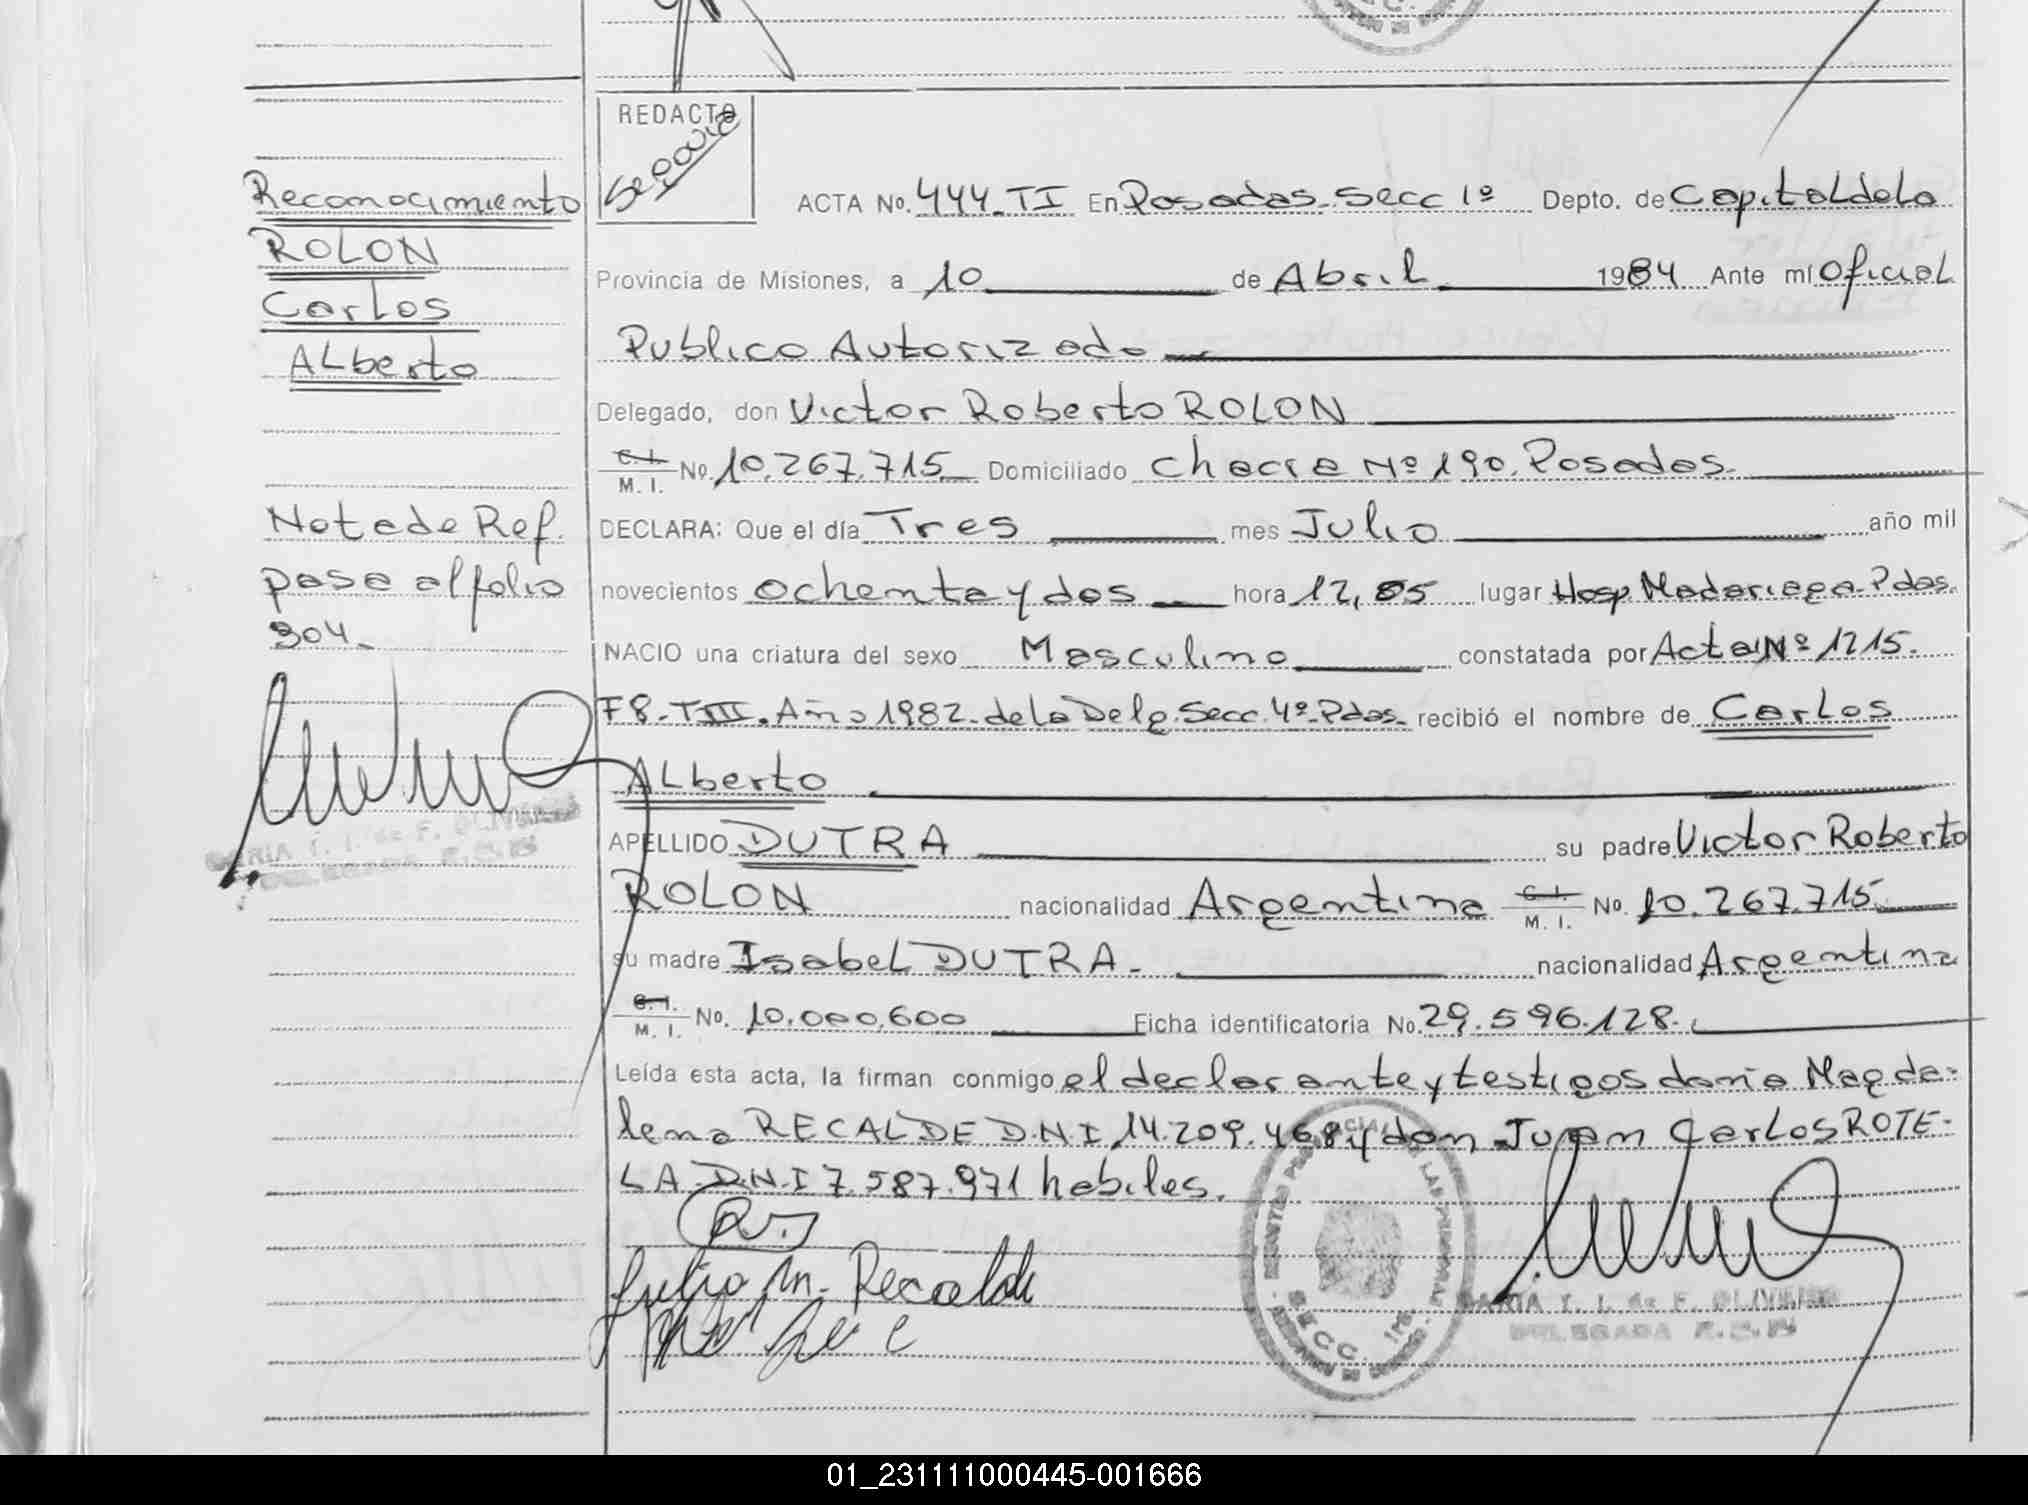 REDACTO
Reconocimiento
ROLON
Carlos
ALberto
Nota de Ref.
pasa al folio
304.-
ACTA No. 444-TI En Posadas. Secc 1º Depto. de Capital de la
Provincia de Misiones, a 10 de Abril 1984 Ante mí Oficial
Publico Autorizado
Delegado, don Victor Roberto ROLON
C. I. / M. I. No. 10.267.715 Domiciliado Chacra Nº 190. Posadas.
DECLARA: Que el día Tres mes Julio año mil
novecientos ochenta y dos hora 12,05 lugar Hosp Madariaga. Pdas.
NACIO una criatura del sexo Masculino constatada por Acta Nº 1215.
F8-TIII. Año 1982. de la Deleg. Secc. 4º- Pdas. recibió el nombre de Carlos
ALberto
APELLIDO DUTRA su padre Victor Roberto
ROLON nacionalidad Argentina C. I. / M. I. No. 10.267.715
su madre Isabel DUTRA. nacionalidad Argentina
C. I. / M. I. No. 10.000.600 Ficha identificatoria No. 29.596.128.
Leída esta acta, la firman conmigo el declarante y testigos doña Magda-
lena RECALDE D.N.I. 14.209.468 y don Juan Carlos ROTE-
LA D.N.I 7.587.971 habiles.
M. Recalde
SECC. 1ra.
DELEGADA
01_231111000445-001666